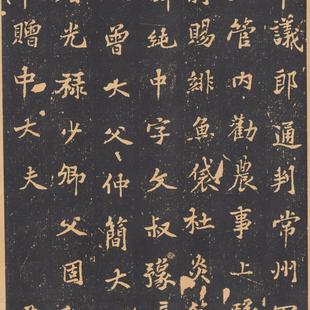 議郎通判常州
管内勸農事上
賜緋魚袋杜炎
純中字文叔豫
曾大父仲簡大
光禄少卿父固
贈中大夫